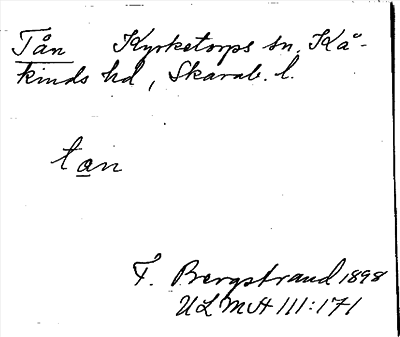 Tån Kyrketorps sn. Kå-
kinds hd, Skarab. l.
tan
F. Bergstrand 1898
ULMA 111:171